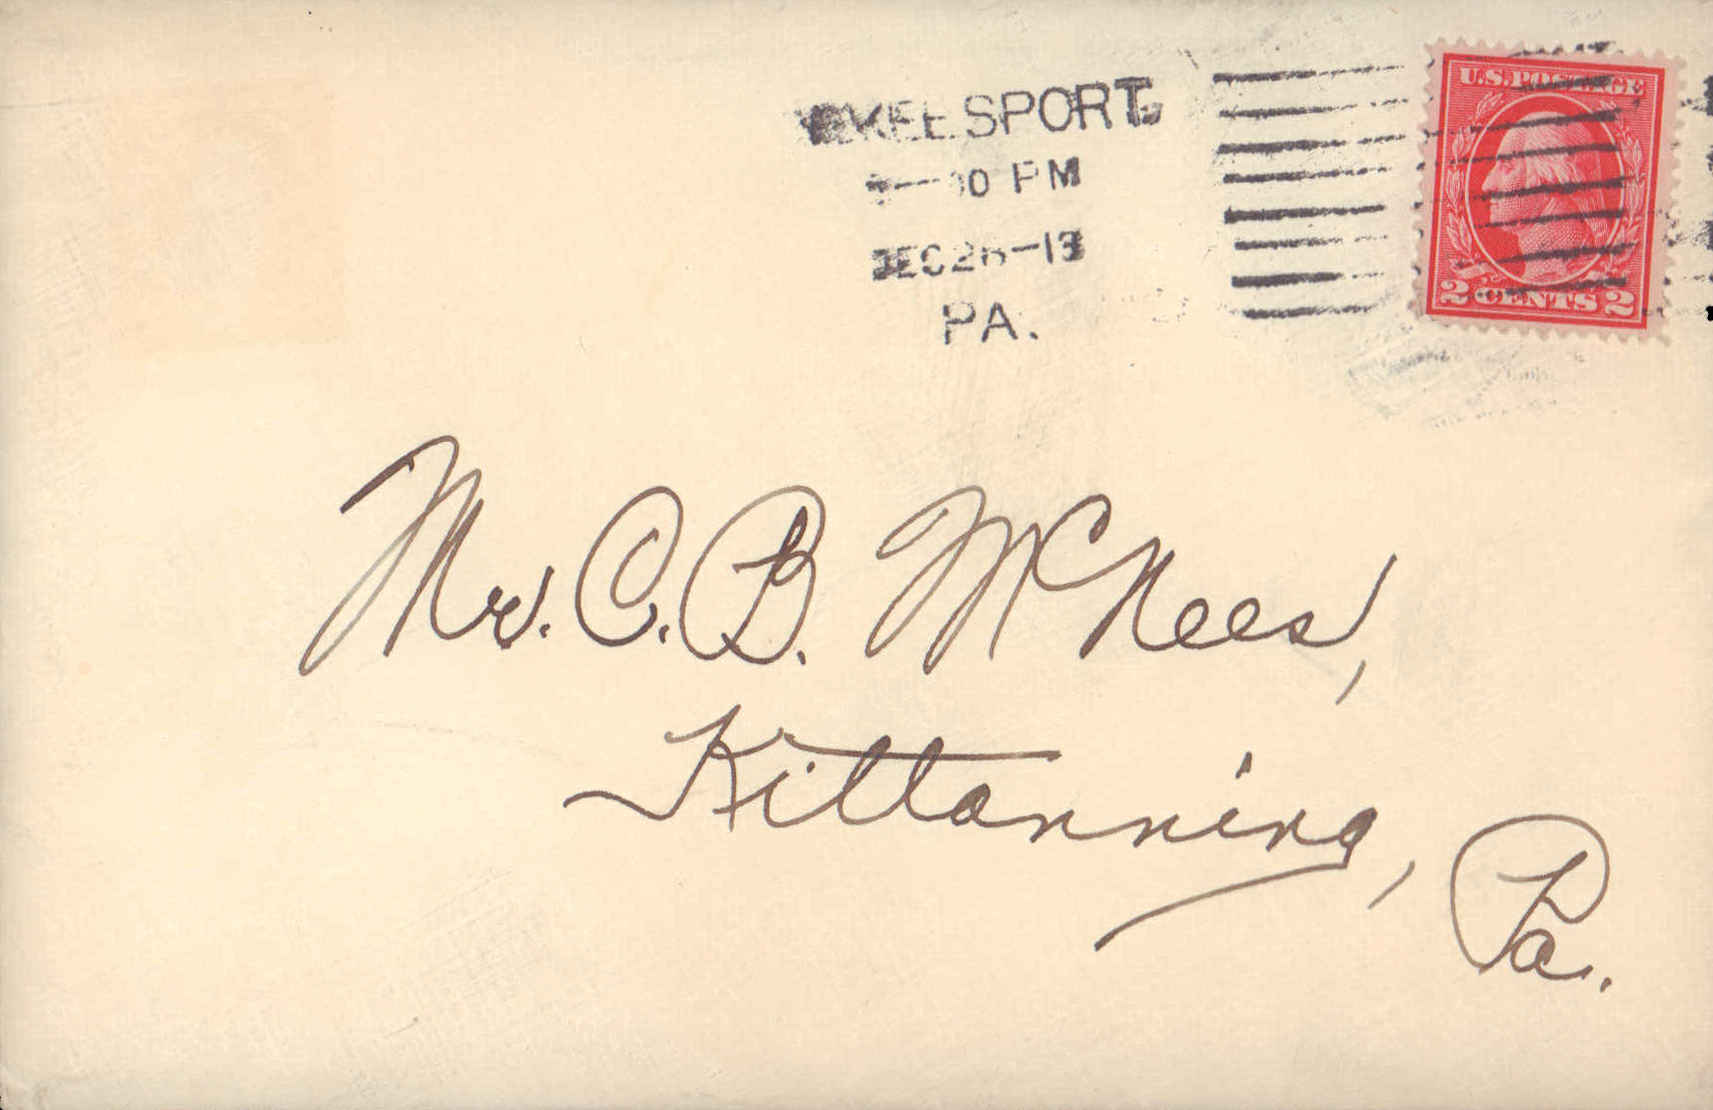 McKEESPORT
PM
DEC 26-13
PA.
U.S. POSTAGE
2 CENTS 2
Mr. C. B. McNees,
Kittanning, Pa.